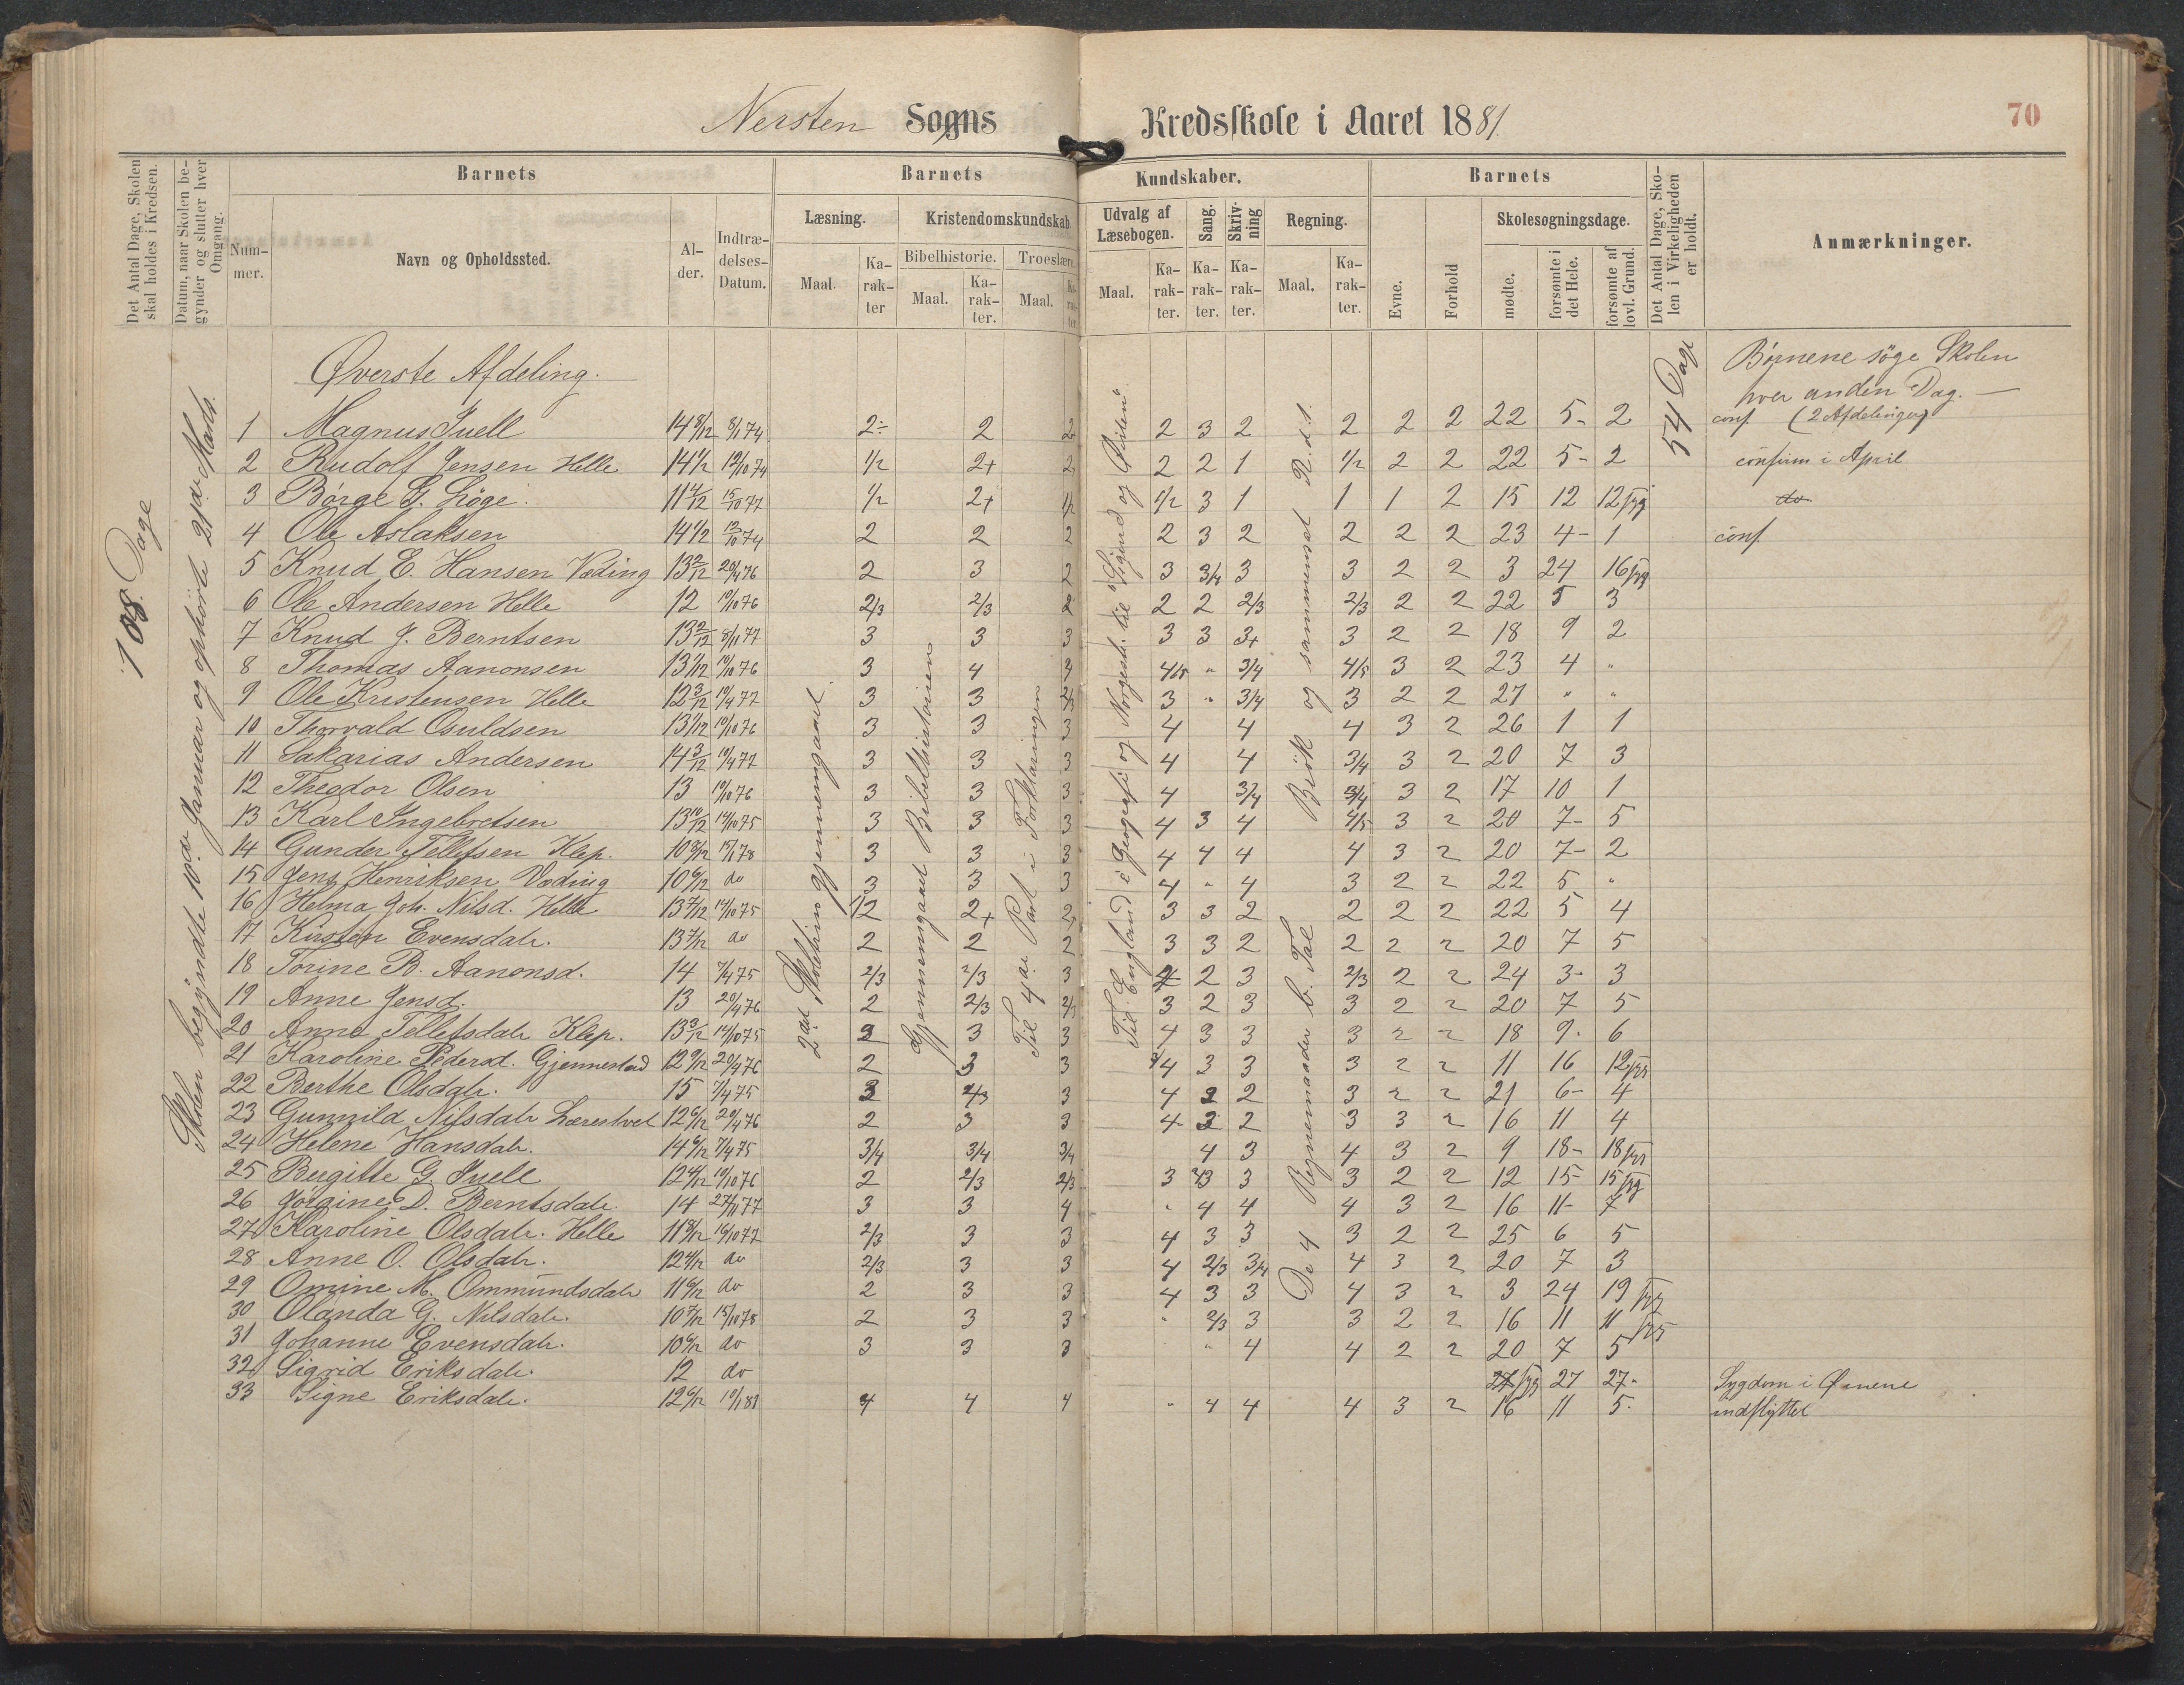 Nersten Sogns Kredsskole i Aaret 1881.
70
Det Antal Dage, Skolen skal holdes i Kredsen.
Datum, naar Skolen begynder og slutter hver Omgang.
Barnets
Nummer.
Navn og Opholdssted.
Alder.
Indtrædelses-Datum.
Barnets Kundskaber.
Læsning.
Maal.
Karakter
Kristendomskundskab.
Bibelhistorie.
Maal.
Karakter.
Troeslære.
Maal.
Karakter.
Udvalg af Læsebogen.
Maal.
Karakter.
Sang.
Karakter.
Skrivning
Karakter.
Regning.
Maal.
Karakter.
Barnets
Evne.
Forhold
Skolesøgningsdage.
mødte.
forsømte i det Hele.
forsømte af lovl. Grund.
Det Antal Dage, Skolen i Virkeligheden er holdt.
Anmærkninger.
108 Dage
Skolen begyndte 10de Januar og ophørte 21de Marts.
Øverste Afdeling.
54 Dage
Børnene søge Skolen
hver anden Dag. —
(2 Afdelinger)
2den Skoletrin gjennemgaaet
Gjennemgaaet Bibelhistorien
Til 4de Part i Forklaringen
Til England i Geografi og Norgesh. til "Sigurd og Øistein"
De 4 Regnemaader b. Tal
og sammensat R. d. t.
1 Magnus Juell 14 8/12 8/1 74 2÷ 2 2 2 3 2 2 2 2 22 5- 2 conf
2 Rudolf Jensen Helle 14 1/2 12/10 74 1/2 2+ 2 2 2 1 1/2 2 2 22 5- 2 confirm i April
3 Børge G. Løge. 11 4/12 15/10 77 1/2 2+ 1/2 1/2 3 1 1 1 2 15 12 12 syg do
4 Ole Aslaksen 14 1/2 13/10 74 2 2 2 2 3 2 2 2 2 23 4- 1 conf.
5 Knud E. Hansen Væding 13 2/12 20/4 76 2 3 2 3 3/4 3 3 2 2 3 24 16 syg
6 Ole Andersen Helle 12 10/10 76 2/3 2/3 2 2 2 2/3 2/3 2 2 22 5 3
7 Knud J. Berntsen 13 2/12 8/11 77 3 3 3 3 3 3+ 3 2 2 18 9 2
8 Thomas Aanonsen 13 1/12 10/10 76 3 4 4/5 " 3/4 4/5 3 2 23 4 "
9 Ole Kristensen Helle 12 3/12 10/4 77 3 3 2/3 3 " 3/4 3 2 2 27 " "
10 Thorvald Osuldsen 13 1/12 10/10 76 3 3 3 4 4 4 3 2 26 1 1
11 Sakarias Andersen 14 3/12 10/4 77 3 3 3 4 4 3/4 3 2 20 7 3
12 Theodor Olsen 13 10/10 76 3 3 3 4 3/4 3/4 3 2 17 10 1
13 Karl Ingebretsen 13 10/12 14/10 75 3 3 3 4 3 4 4/5 3 2 20 7- 5
14 Gunder Tellefsen Klep. 10 8/12 15/1 78 3 3 3 4 4 4 4 3 2 20 7- 2
15 Jens Henriksen Væding 10 6/12 do 3 3 3 4 " 4 3 2 2 22 5 "
16 Helma Joh. Nilsd. Helle 13 7/12 14/10 75 1/2 2+ 2+ 3 3 2 2 2 2 22 5 4
17 Kirsten Evensdatr. 13 7/12 do 2 2 2 3 3 2 2 2 2 20 7 5
18 Torine B. Aanonsd. 14 7/4 75 2/3 2/3 3 2 3 2/3 2 2 24 3- 3
19 Anne Jensd. 13 20/4 76 2 2/3 2/3 3 2 3 3 2 2 20 7 5
20 Anne Tellefsdatr Klep. 13 3/12 14/10 75 3 3 3 4 3 3 3 2 2 18 9- 6
21 Karoline Pedersd. Gjennestad 12 9/12 20/4 76 2 3 3 4 3 3 3 2 2 11 16 12 syg
22 Berthe Olsdatr. 15 7/4 75 3 2/3 3 4 2 2 3 2 2 21 6- 4
23 Gunnild Nilsdatr 12 6/12 20/4 76 2 3 3 4 3 2 3 3 2 16 11 4
24 Helene Hansdatr. 14 6/12 7/4 75 3/4 3/4 3/4 4 3 4 3 2 9 18- 18 syg
25 Birgitte G. Juell 12 4/12 10/10 76 2 2/3 2/3 3 2/3 3 3 2 2 12 15- 15 syg
26 Jørgine D. Berntsdatr. 14 27/11 77 3 3 4 " 4 4 4 3 2 16 11- 7
27 Karoline Olsdatr. Helle 11 8/12 16/10 77 2/3 3 3 4 3 3 3 2 2 25 6 5
28 Anne O. Olsdatr. 12 4/12 do 2/3 3 3 4 2/3 3/4 4 3 2 20 7 3
29 Omine M. Ommundsdatr 11 6/12 do 2 3 3 4 3 3 4 3 2 3 24 19 syg
30 Olanda G. Nilsdatr. 10 7/12 15/10 78 2 3 3 " 2/3 3 3 2 2 16 11 11 syg
31 Johanne Evensdatr. 10 6/12 do 3 3 3 " 4 4 2 2 20 7 5
32 Sigrid Eriksdatr. 12 do syg 27 27- Sygdom i Øinene
33 Signe Eriksdatr. 12 6/12 10/1 81 4 4 4 " 4 4 4 3 2 16 11 5- indflyttet